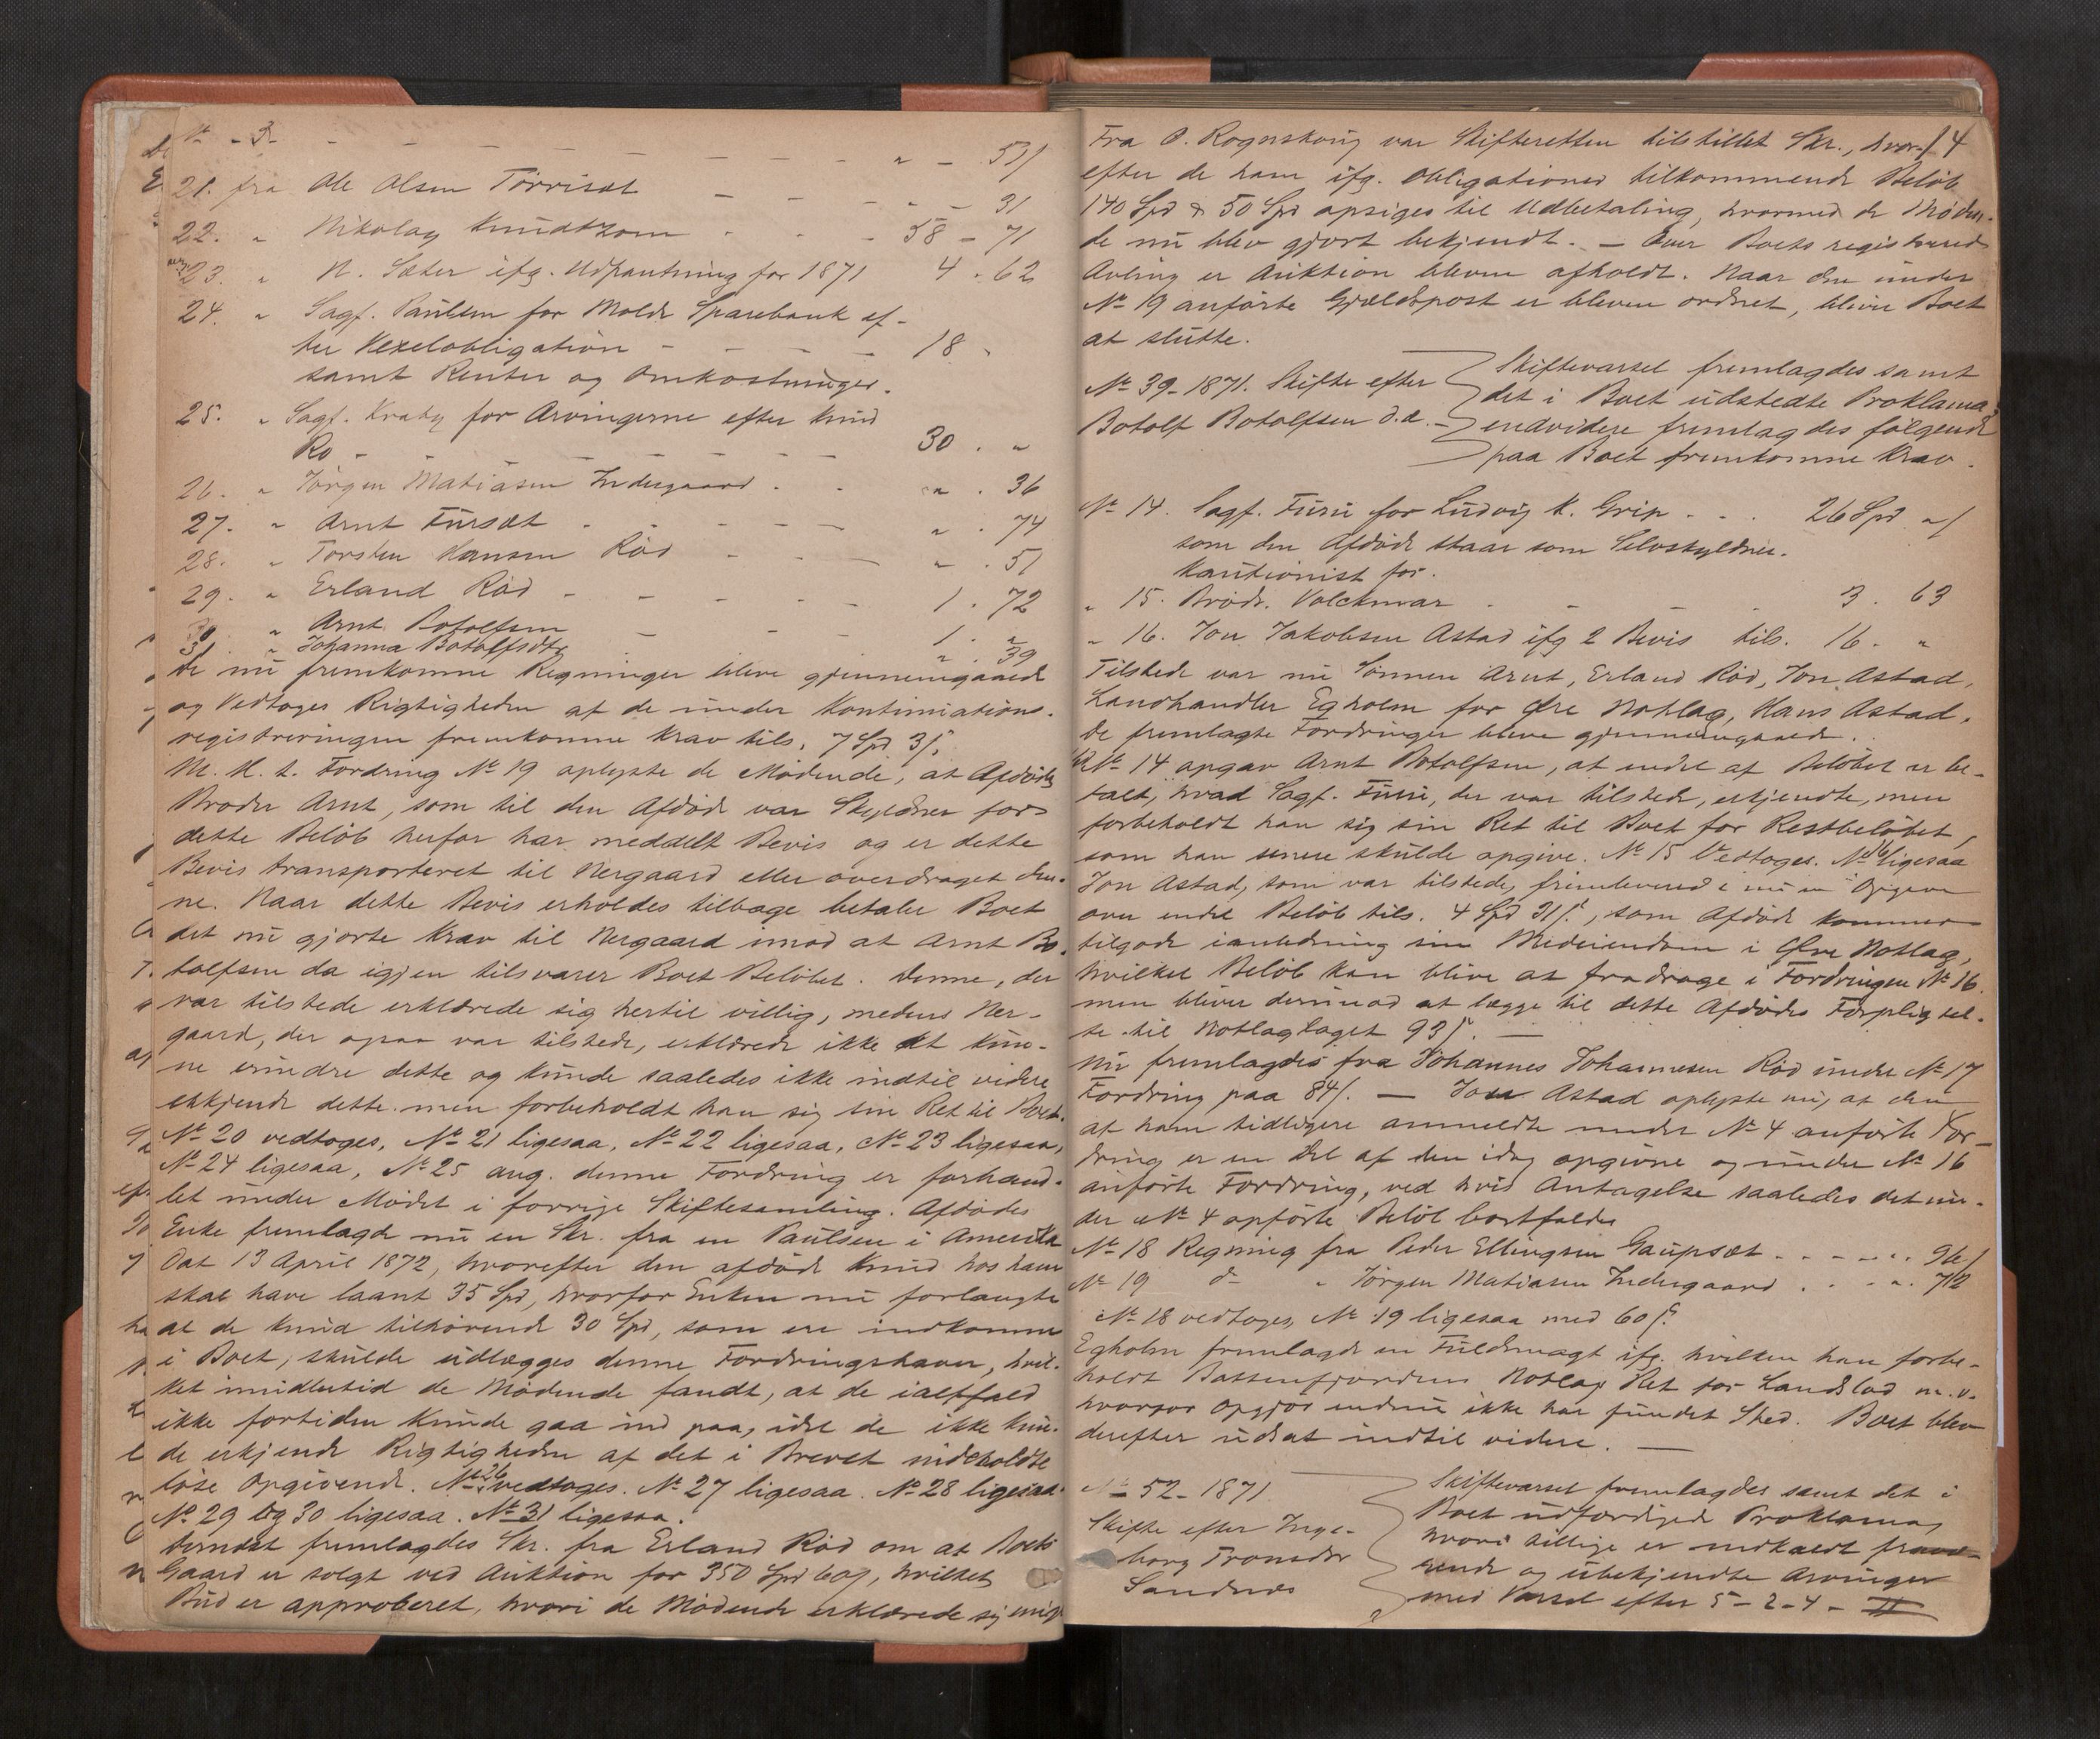 21. fra Ole Olsen Tørrisæt - - - " - 31
22. " Nikolay Knudtzon - - - 58 - 71
23. " N. Sæter ifg. Udpantning for 1871 4 - 62
24. " Sagf. Paulsen for Molde Sparebank ef-
ter Vexelobligation - - - - 18 "
samt Renter og Omkostninger.
25. " Sagf. Kraby for Arvingerne efter Knud
Ro - - - - - 30 . "
26. " Jørgen Matiasen Indergaard . . " . 36
27. " Arnt Fursæt - - - - " . 74
28. " Torsten Hansen Rød - - - " . 51
29. " Erland Rød - - - - - 1 . 72
30. " Arnt Botolfsen - - - 1 . "
31. " Johanna Botolfsdtr " . 39
De nu fremkomne Regninger bleve gjennemgaaede
og Vedtoges Rigtigheden af de under Kontinuations-
registreringen fremkomne Krav tils. 7 Spd 3 s.
M. H. t. Fordring № 19 oplyste de Mødende, at Afdødes
Broder Arnt, som til den Afdøde var Skyldner for
dette Beløb herfor har meddelt Bevis og er dette
Bevis transporteret til Nergaard eller overdraget den-
ne. Naar dette Bevis erholdes tilbage betaler Boet
det nu gjorte Krav til Nergaard imod at Arnt Bo-
tolfsen da igjen tilsvarer Boet Beløbet. Denne, der
var tilstede erklærede sig hertil villig, medens Ner-
gaard, der ogsaa var tilstede, erklærede ikke at kun-
ne erindre dette og kunde saaledes ikke indtil videre
erkjende dette. men forbeholdt han sig sin Ret til Boet.
№ 20 vedtoges, № 21 ligesaa, № 22 ligesaa, № 23 ligesaa,
№ 24 ligesaa, № 25 ang. denne Fordring er forhand-
let under Mødet i forrige Skiftesamling. Afdødes
Enke fremlagde nu en Skr. fra en Paulsen i Amerika
Dat 13 April 1872, hvorefter den afdøde Knud hos ham
skal have laant 35 Spd, hvorfor Enken nu forlangte
at de Knud tilhørende 30 Spd, som ere indkomne
i Boet, skulde udlægges denne Fordringshaver, hvil-
ket imidlertid de Mødende fandt, at de ialtfald
ikke fortiden kunde gaa ind paa, idet de ikke kun-
de erkjende Rigtigheden af det i Brevet indeholdte
løse Opgivende. № 26 vedtoges. № 27 ligesaa. № 28 ligesaa.
№ 29 og 30 ligesaa. № 31 ligesaa.
Dernæst fremlagdes Skr. fra Erland Rød om at Boets
Gaard er solgt ved Auktion for 350 Spd 60 s, hvilket
Bud er approberet, hvori de Mødende erklærede sig enige
14
Fra O. Rognskoug var Skifteretten tilstillet Skr., hvor-
efter de ham ifg. Obligationer tilkommende Beløb
140 Spd & 50 Spd opsiges til Udbetaling, hvormed de Møden-
de nu blev gjort bekjendt. - Over Boets registrerede
Avling er Auktion bleven afholdt. Naar den under
№ 19 anførte Gjældspost er bleven ordnet, bliver Boet
at slutte.
№ 39-1871. Skifte efter
Botolf Botolfsen d.æ. -
Skiftevarsel fremlagdes samt
det i Boet udstedte Proklama,
endvidere fremlagdes følgende
paa Boet fremkomne Krav.
№ 14. Sagf. Furu for Ludvig K. Grip - . . 26 Spd " s
som den Afdøde staar som Selvskyldner-
kautionist for.
" 15. Brødr. Volckmar - - - . 3 . 63
" 16. Jon Jakobsen Astad ifg 2 Bevis tils. 16 . "
Tilstede var nu Sønnen Arnt, Erland Rød, Jon Astad,
Landhandler Egholm for Øre Notlag, Hans Astad.
De fremlagte Fordringer bleve gjennemgaaede.
№ 14 opgav Arnt Botolfsen, at endel af Beløbet er be-
talt, hvad Sagf. Furu, der var tilstede, erkjendte, men
forbeholdt han sig sin Ret til Boet for Restbeløbet,
som han senere skulde opgive. № 15 Vedtoges. № 16 ligesaa
Jon Astad, som var tilstede, fremleverede nu en Opgave
over endel Beløb tils. 4 Spd 31 s., som Afdøde kommer
tilgode ianledning sin Medeiendom i Øre Notlag,
hvilket Beløb kan blive at fradrage i Fordringen № 16.
men bliver derimod at lægge til dette Afdødes Forpligtel-
se til Notlaglaget 93 s. -
Nu fremlagdes fra Johannes Johannesen Rød under № 17
Fordring paa 84 s. - Jon Astad oplyste nu, at den
af ham tidligere anmeldte under № 4 anførte For-
dring er en Del af den idag opgivne og under № 16
anførte Fordring, ved hvis Antagelse saaledes det un-
der № 4 opførte Beløb bortfalder
№ 18 Regning fra Peder Ellingsen Gaupsæt . . . . . . 96 s
№ 19 do " Jørgen Matiasen Indergaard . . . ". 72
№ 18 vedtoges, № 19 ligesaa med 60 s.
Egholm fremlagde en Fuldmagt ifg. hvilken han forbe-
holdt Battenfjordens Notlag Ret for Landslod m. v.
hvorfor Opgjør endnu ikke har fundet Sted. Boet blev
derefter udsat indtil videre. -
№ 52-1871
Skifte efter Inge-
borg Tronsdtr
Sandnes
Skiftevarsel fremlagdes samt det i
Boet udfærdigede Proklama,
hvori tillige er indkaldt fravæ-
rende og ubekjendte Arvinger
med Varsel efter 5-2-4-